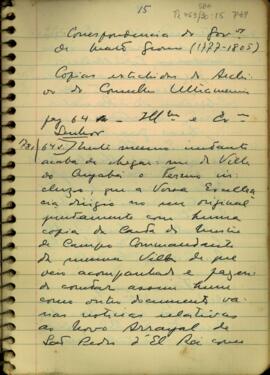 15
Correspondencia do Gov.or
de Mato Grosso (1777-1805)
Copias extrahidas do Archi-
vo do Conselho Ultramarino
pag 64 - Ill.mo e Ex.mo
Senhor
Neste mesmo instante
acaba de chegar-me da Villa
do Cuyabá o Termo in-
cluzo, que a Vossa Excellen-
cia dirigio no seu original
juntamente com huma
copia da Carta do Mestre
de Campo Commandante
da mesma Villa de que
vem acompanhado e
de constar assim hum
como outro documento va-
rias noticias relativas
ao Novo Arrayal de
São Pedro d'El Rei com